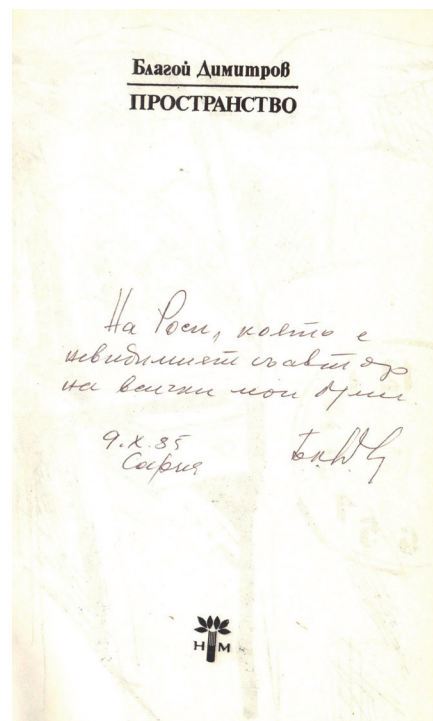 Благой Димитров
ПРОСТРАНСТВО
На Роси, която е
невидимият съавтор
на всички мои
9.X.85
София
НМ